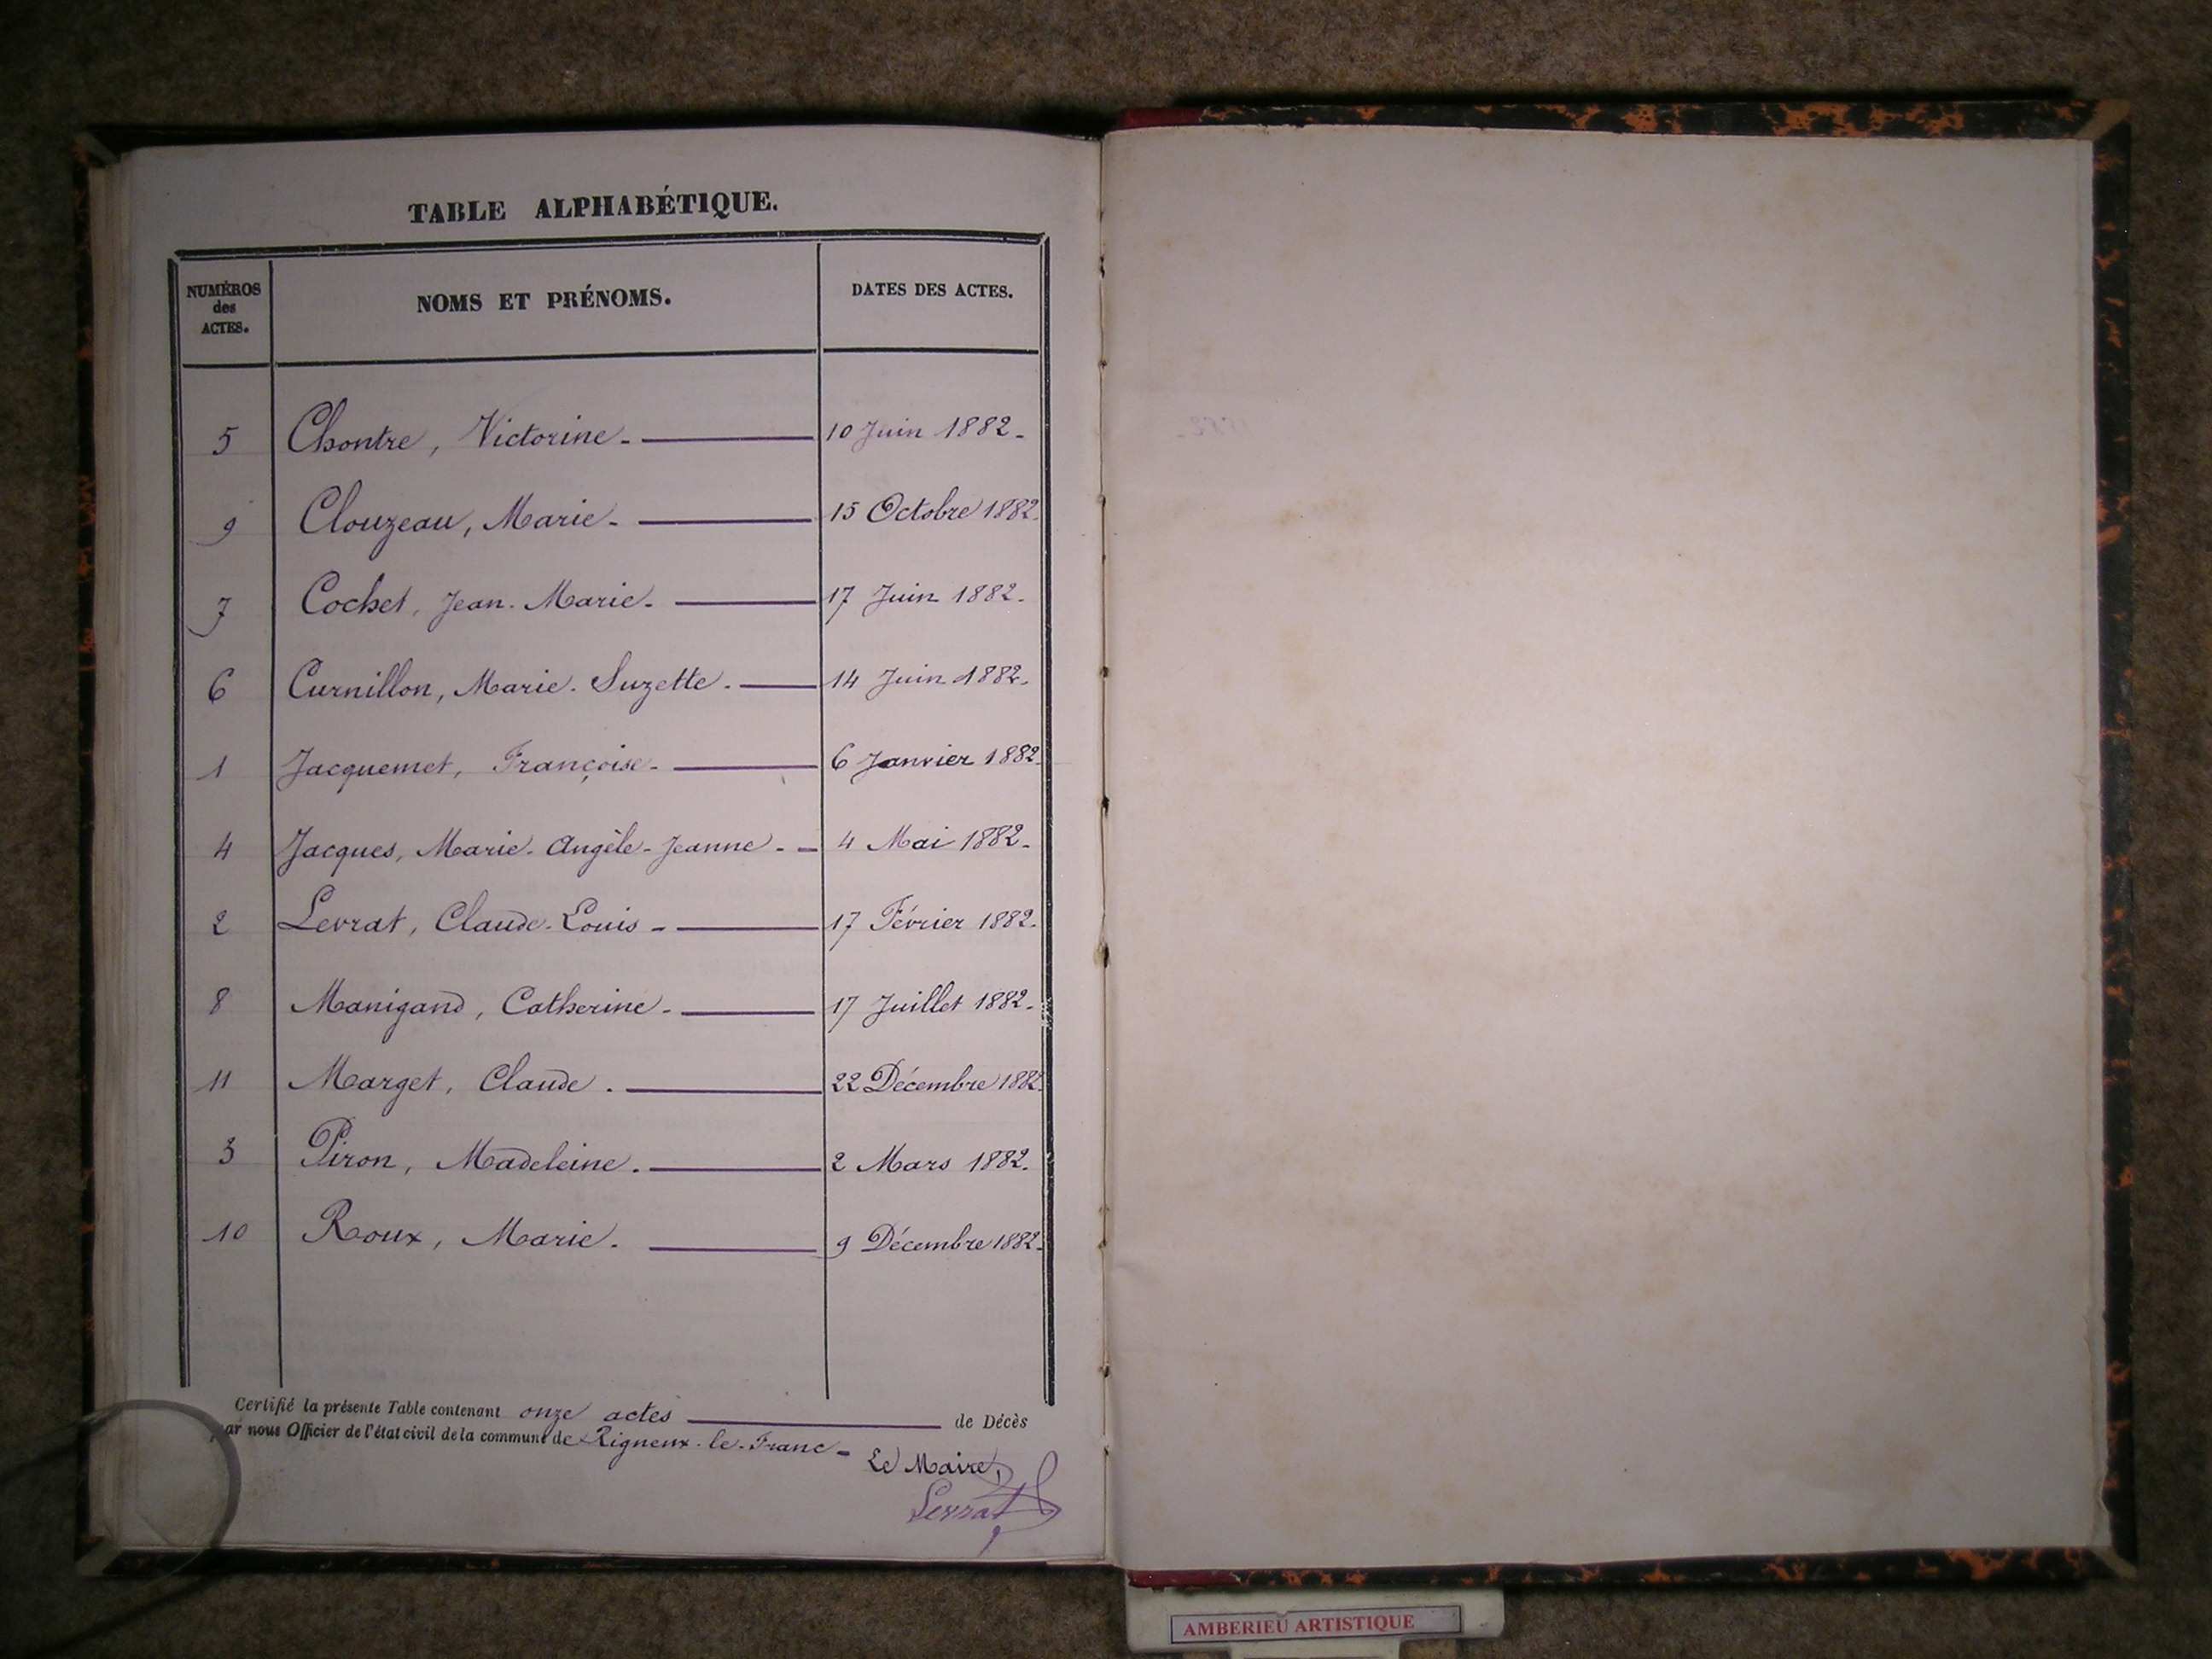 TABLE ALPHABÉTIQUE.
NUMÉROS des ACTES. NOMS ET PRÉNOMS. DATES DES ACTES.
5 Chontre, Victorine. 10 Juin 1882.
9 Clouzeau, Marie. 15 Octobre 1882.
7 Cochet, Jean-Marie. 17 Juin 1882.
6 Curnillon, Marie-Suzette. 14 Juin 1882.
1 Jacquemet, Françoise. 6 Janvier 1882.
4 Jacques, Marie-Angèle-Jeanne. 4 Mai 1882.
2 Levrat, Claude-Louis. 17 Février 1882.
8 Manigand, Catherine. 17 Juillet 1882.
11 Marget, Claude. 22 Décembre 1882.
3 Piron, Madeleine. 2 Mars 1882.
10 Roux, Marie. 9 Décembre 1882.
Certifié la présente Table contenant onze actes de Décès
par nous Officier de l'état civil de la commune de Rigneux-le-Franc
Le Maire,
Levrat
AMBERIEU ARTISTIQUE